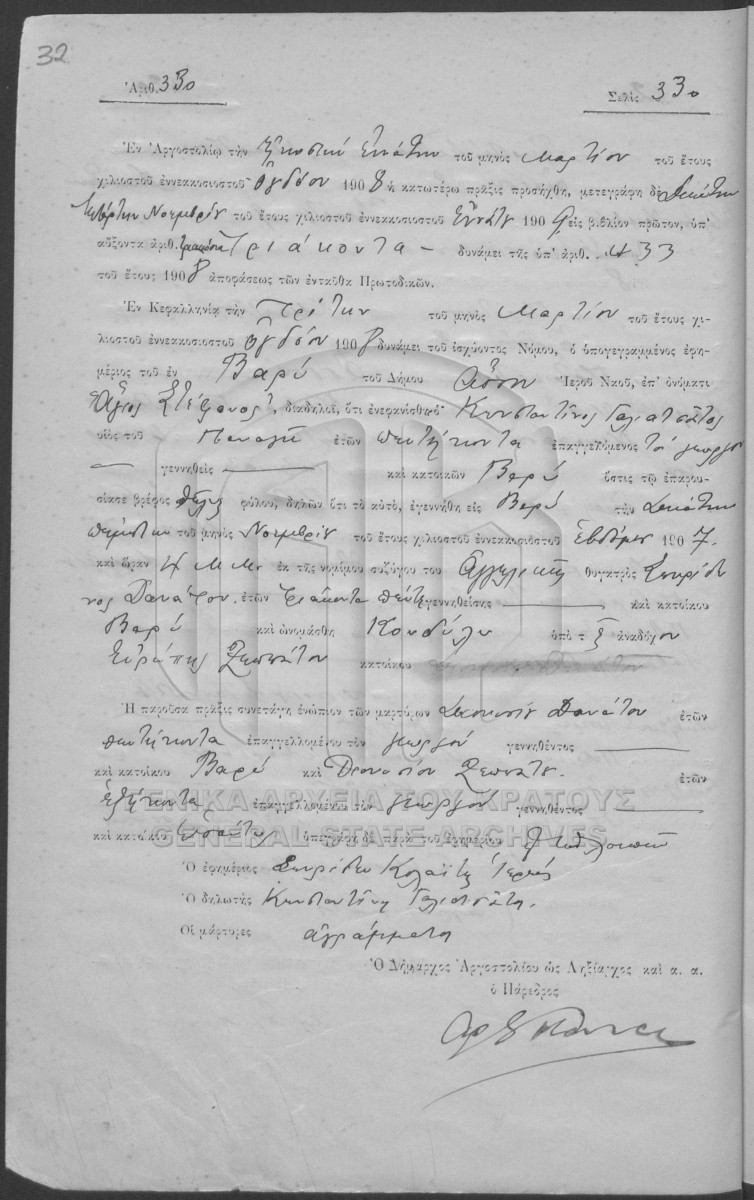 32
Ἀριθ. 330 Σελὶς 330
Ἐν Ἀργοστολίῳ τὴν Εἰκοστὴν Ἐννάτην τοῦ μηνὸς Μαρτίου τοῦ ἔτους
χιλιοστοῦ ἐννεακοσιοστοῦ Ὀγδόου 1908 ἡ κατωτέρω πρᾶξις προσήχθη, μετεγράφη δὲ Δεκάτην
Τετάρτην Νοεμβρίου τοῦ ἔτους χιλιοστοῦ ἐννεακοσιοστοῦ Ἐννάτου 1909 εἰς βιβλίον πρῶτον, ὑπ'
αὔξοντα ἀριθ. τριακόσια Τριάκοντα — δυνάμει τῆς ὑπ' ἀριθ. 433
τοῦ ἔτους 1908 ἀποφάσεως τῶν ἐνταῦθα Πρωτοδικῶν.
Ἐν Κεφαλληνίᾳ τὴν Πρώτην τοῦ μηνὸς Μαρτίου τοῦ ἔτους χι-
λιοστοῦ ἐννεακοσιοστοῦ Ὀγδόου 1908 δυνάμει τοῦ ἰσχύοντος Νόμου, ὁ ὑπογεγραμμένος ἐφη-
μέριος τοῦ ἐν Βαρύ τοῦ Δήμου Ἱεροῦ Ναοῦ, ἐπ' ὀνόματι
Ἅγιος Στέφανος, διαδηλοῖ, ὅτι ἐνεφανίσθη ὁ Κωνσταντῖνος Γαλιατσάτος
υἱὸς τοῦ Παναγῆ ἐτῶν πεντήκοντα ἐπαγγελόμενος τὸν γεωργόν
— γεννηθεὶς — καὶ κατοικῶν Βαρύ ὅστις τῷ ἐπαρου-
σίασε βρέφος θῆλυ φύλου, δηλῶν ὅτι τὸ αὐτὸ, ἐγεννήθη εἰς Βαρύ τὴν Δεκάτην
πέμπτην τοῦ μηνὸς Νοεμβρίου τοῦ ἔτους χιλιοστοῦ ἐννεακοσιοστοῦ Ἑβδόμου 1907.
καὶ ὥραν Μ.Μ. ἐκ τῆς νομίμου συζύγου του Ἀγγελικῆς θυγατρὸς Σπυρίδω
νος Δανάτου. ἐτῶν τριάκοντα πέντε γεννηθείσης — καὶ κατοίκου
Βαρύ καὶ ὠνομάσθη Κονδύλω ὑπὸ τ ἀναδόχου
Ζαπάντου κατοίκου
Ἡ παροῦσα πρᾶξις συνετάγη ἐνώπιον τῶν μαρτύρων Δανάτου ἐτῶν
πεντήκοντα ἐπαγγελλομένου τὸν γεωργόν γεννηθέντος —
καὶ κατοίκου Βαρύ καὶ Διονυσίου ἐτῶν
Ἑξήκοντα ἐπαγγελλομένου τὸν γεωργόν γεννηθέντος —
καὶ κατοίκου ὑπεγράφη δὲ παρὰ τοῦ ἐφημερίου
Ὁ ἐφημέριος Σπυρίδων Ἱερεύς
Ὁ δηλωτὴς Κωνσταντῖνος Γαλιατσάτος.
Οἱ μάρτυρες ἀγράμματοι
Ὁ Δήμαρχος Ἀργοστολίου ὡς Ληξίαρχος καὶ α. α.
ὁ Πάρεδρος
ΓΕΝΙΚΑ ΑΡΧΕΙΑ ΤΟΥ ΚΡΑΤΟΥΣ
GENERAL STATE ARCHIVES